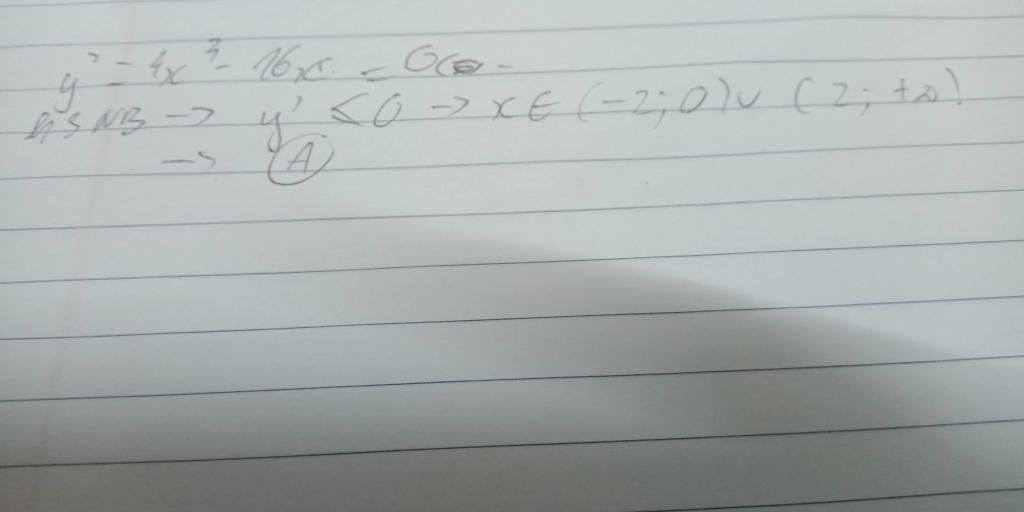 y' = 4x³ - 16x = 0
HSNB → y' < 0 → x ∈ (-2; 0) ∪ (2; +∞)
→ A